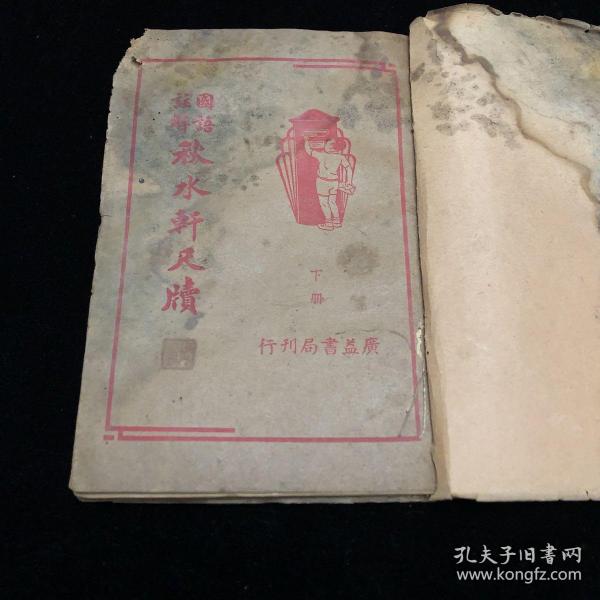 國語
註解
秋水軒尺牘
下冊
廣益書局刊行
孔夫子旧書网
www.kongfz.com